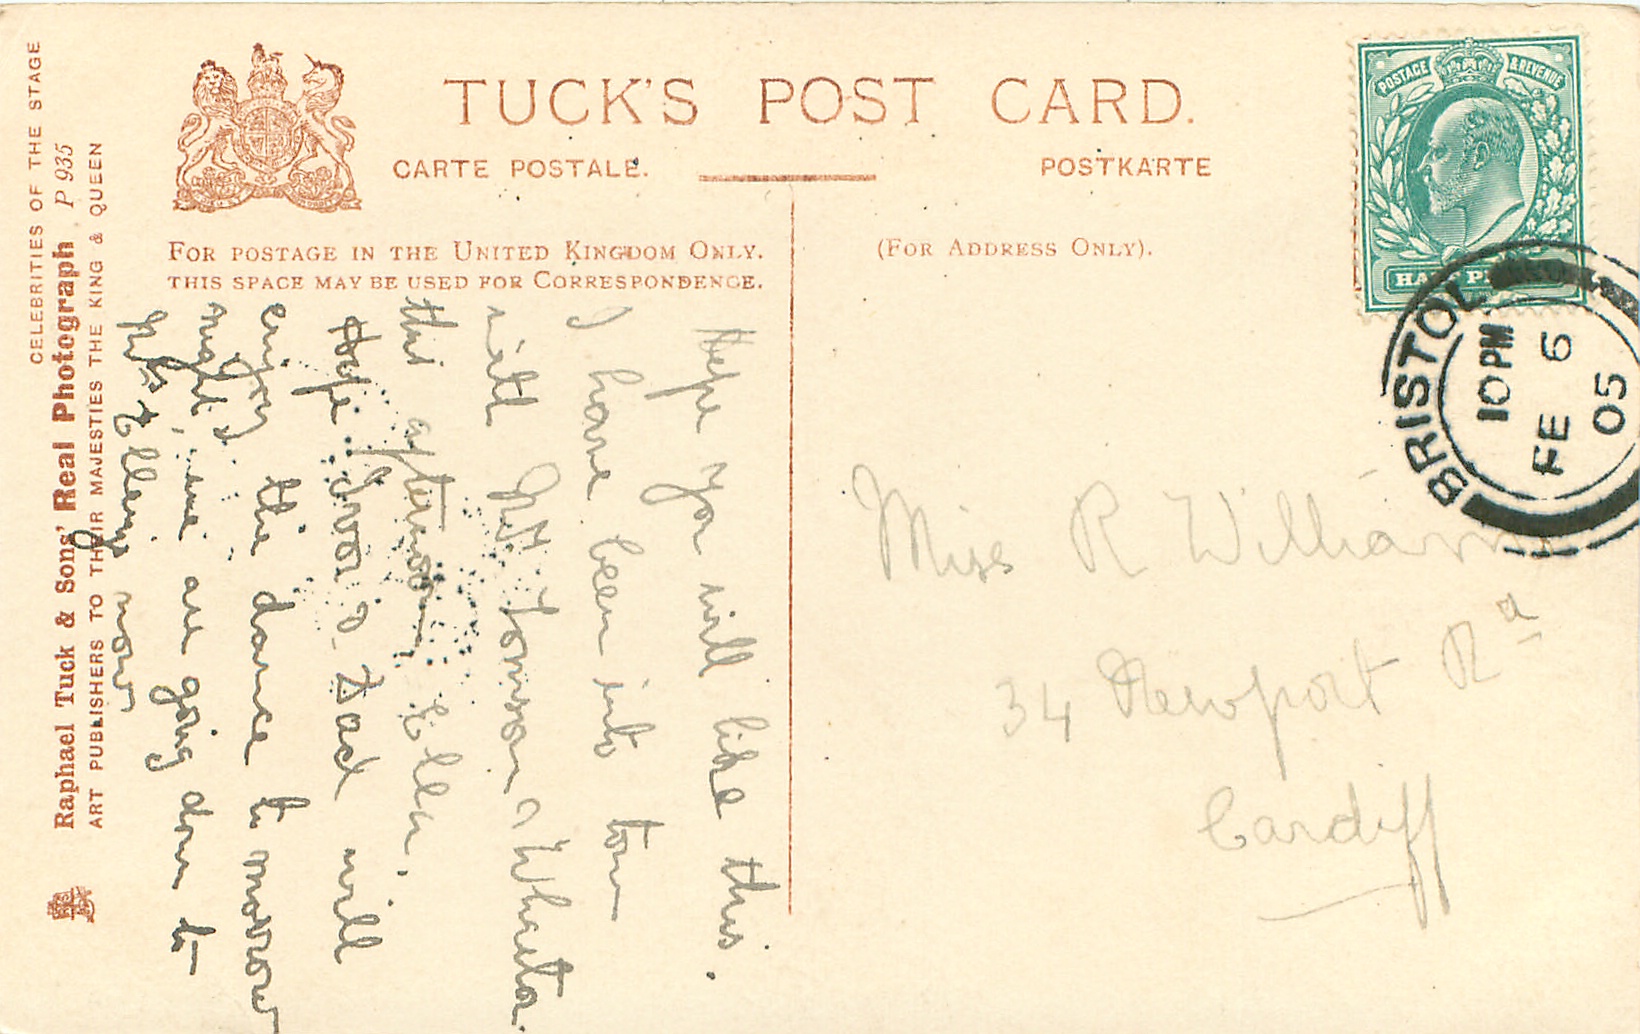 TUCK'S POST CARD.
CARTE POSTALE.
POSTKARTE
FOR POSTAGE IN THE UNITED KINGDOM ONLY.
THIS SPACE MAY BE USED FOR CORRESPONDENCE.
(FOR ADDRESS ONLY).
POSTAGE & REVENUE
HALF PENNY
BRISTOL
10 PM
FE 6
05
Miss R Williams
34 Newport Rd
Cardiff
Hope you will like this.
I have been into town
with
this afternoon Ella.
Hope Ivor & Dad will
enjoy the dance to morrow
night, we are going down to
now
CELEBRITIES OF THE STAGE
Raphael Tuck & Sons' Real Photograph P 935
ART PUBLISHERS TO THEIR MAJESTIES THE KING & QUEEN